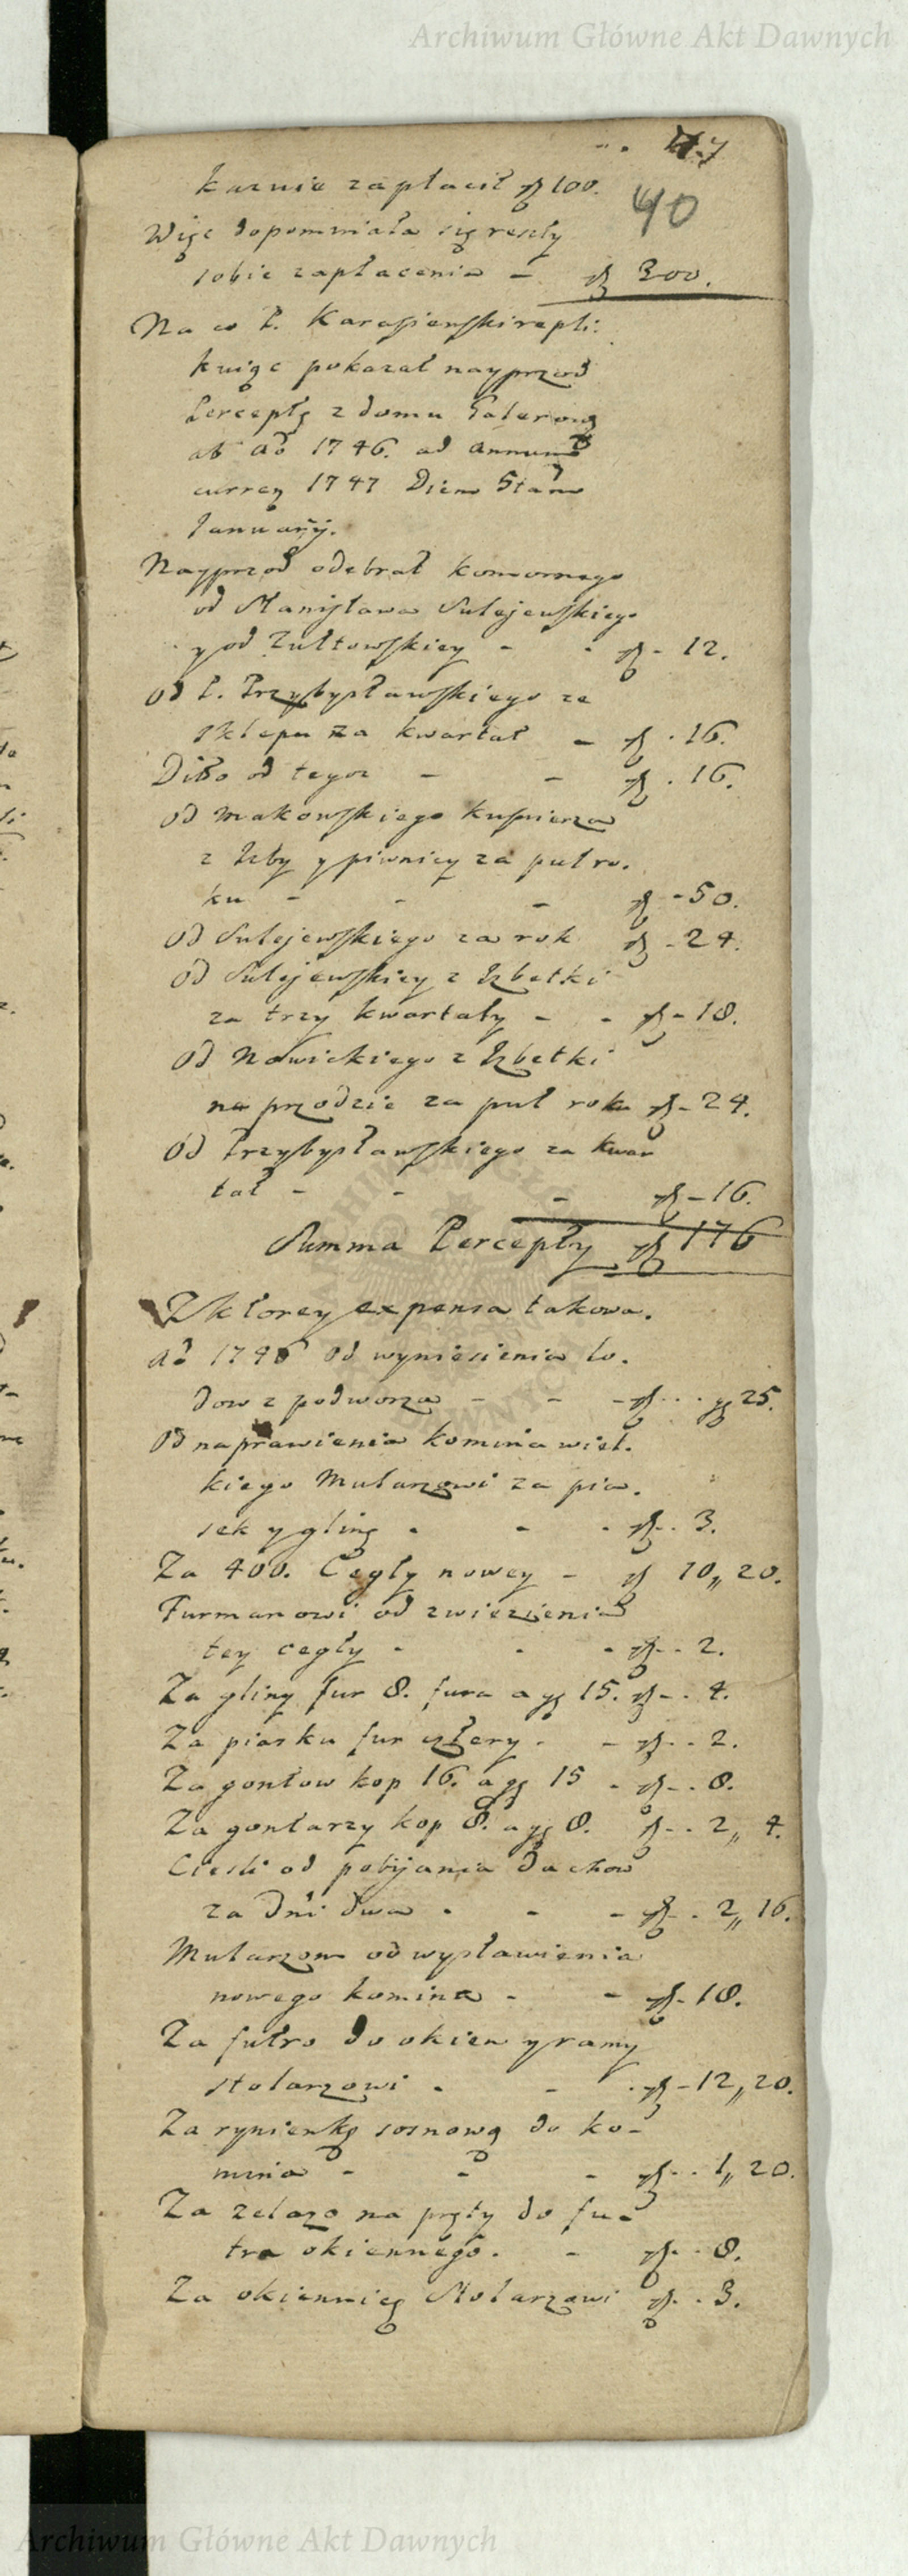 Archiwum Główne Akt Dawnych
47
karnie zapłacił zł 100.
40
Więc dopominała się reszty
sobie zapłacenia - zł 300.
Na co P. Karasienski repli:
kuiąc pokazał nayprzod
Perceptę z domu
ab Ao 1746. ad annum
curren 1747 Diem 5tam
Januarij.
Nayprzod odebrał komornego
od Stanisława Sulejewskiego
y od Zułtowskiey - - zł - 12.
Od P. Przybysławskiego ze
sklepu za kwartał - zł - 16.
Ditto od tegoz - - zł . 16.
Od Makowskiego Kusnierza
z Izby y piwnicy za puł ro.
ku - - - zł - 50.
Od Sulejewskiego za rok zł - 24.
Od Sulejewskiey z Izbetki
za trzy kwartały - - zł - 18.
Od Nowickiego z Izbetki
na przodzie za puł roku zł - 24.
Od Przybysławskiego za kwar
tał - - - zł - 16.
Summa Percepty zł 176
Z ktorey expensa takowa.
Ao 1746 Od wyniesienia lo.
dow z podworza - - - zł . . . gr 25.
Od naprawienia komina wiel.
kiego Mularzowi za pia.
sek y glinę . - . zł . . 3.
Za 400. Cegły nowey - zł 10,, 20.
Furmanowi od zwiezienia
tey cegły - . . zł - . 2.
Za gliny fur 8. fura a gr 15. zł - . 4.
Za piasku fur cztery . - zł . . 2.
Za gontow kop 16. a gr 15 . zł - . 8.
Za gontarzy kop 8. a gr 8. zł - . 2,, 4.
Cieśli od pobijania dachow
za dni dwa . - - zł - . 2,, 16.
Mularzom od wystawienia
nowego komina - - zł - 18.
Za futro do okien y ramy
stolarzowi . - . zł - 12,, 20.
Za rynienkę sosnową do ko-
mina - - - zł . . 1,, 20.
Za zelazo na pręty do fu-
tra okiennego . - zł . . 8.
Za okiennicę Stolarzowi zł . . 3.
Archiwum Główne Akt Dawnych